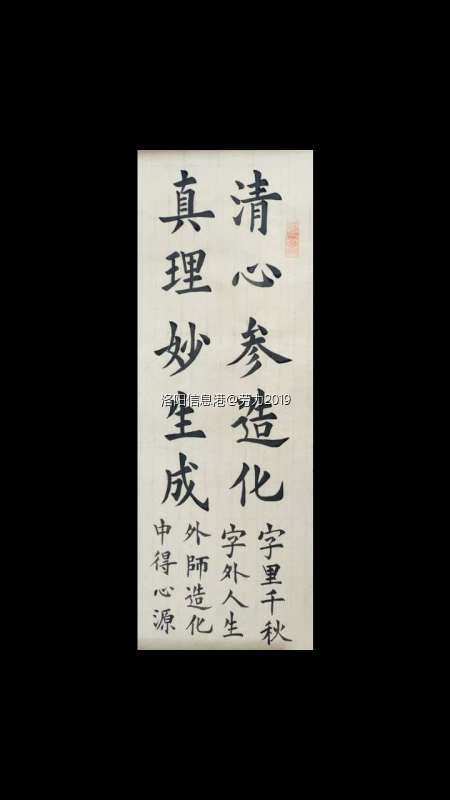 清心参造化
真理妙生成
字里千秋
字外人生
外師造化
中得心源
洛阳信息港@劳力2019